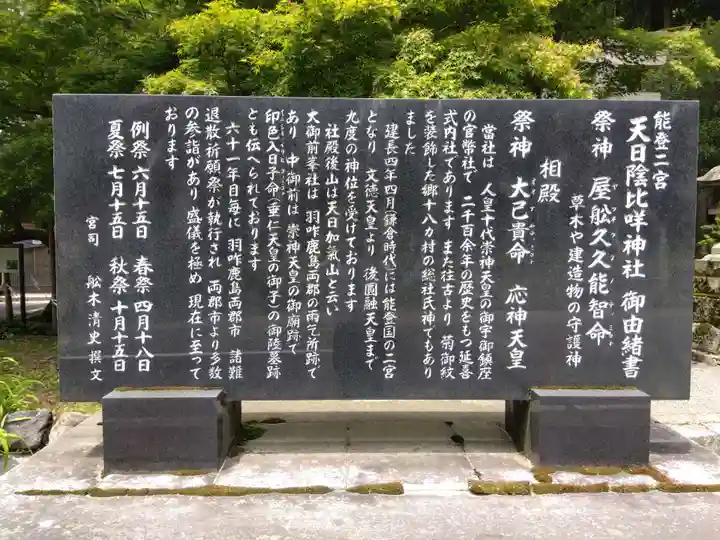 能登二宮
天日陰比咩神社 御由緒書
祭神 屋舩久久能智命
草木や建造物の守護神
相殿
祭神 大己貴命 応神天皇
当社は 人皇十代崇神天皇の御宇御鎮座
の官幣社で 二千百余年の歴史をもつ延喜
式内社であります また往古より 菊御紋
を装飾した郷十八カ村の総社氏神でもあり
ました
建長四年四月(鎌倉時代)には能登国の二宮
となり 文徳天皇より 後圓融天皇まで
九度の神位を受けております
社殿後山は天日加氣山と云い
大御前峯社は 羽咋鹿島両郡の雨乞所跡で
あり 中御前は 崇神天皇の御廟跡で
印色入日子命(垂仁天皇の御子)の御陵墓跡
とも伝へられております
六十一年目毎に 羽咋鹿島両郡市 諸難
退散祈願祭が執行され 両郡市より多数
の参詣があり 盛儀を極め 現在に至って
おります
例祭 六月十五日 春祭 四月十八日
夏祭 七月十五日 秋祭 十月十五日
宮司 舩木清史 撰文